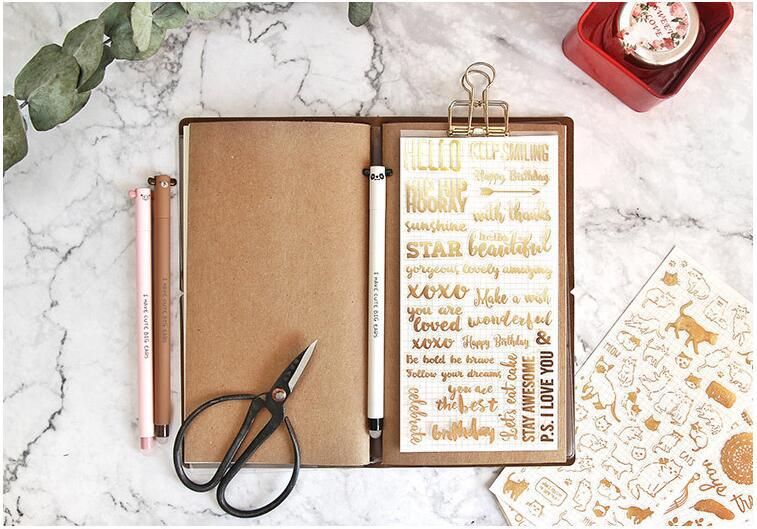 HELLO KEEP SMILING
Happy Birthday
HIP HIP
HOORAY
with thanks
sunshine
hello
STAR beautiful
gorgeous, lovely amazing
xoxo Make a wish
you are
loved wonderful
xoxo Happy Birthday &
Be bold be brave
Follow your dreams,
you are
the best
celebrate
Birthday
Let's eat cake
STAY AWESOME
P.S. I LOVE YOU
I HAVE CUTE BIG EARS
I HAVE CUTE BIG EARS
I HAVE CUTE BIG EARS
SWEET
LOVE
CATS